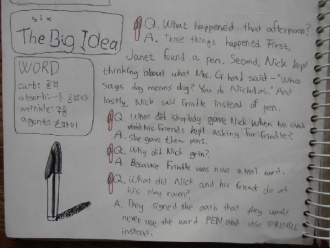 six
The Big Idea
WORD
curb:
absorb:
wrinkle:
agent:
Q. What happened that afternoon?
A. Three things happened First,
Janet found a pen. Second, Nick kept
thinking about what Mrs. G had said - "Who
says dog means dog? You do Nicholas." And
lastly, Nick said frindle instead of pen.
Q. What did shopkeeping Nick when he
and his friends kept asking for frindle?
A. She gave them pens.
Q. Why did Nick grin?
A. Because Frindle was now a real word.
Q. What did Nick and his friend do at
his play room?
A. They signed the oath that they would
never use the word PEN and use FRINDLE
instead.